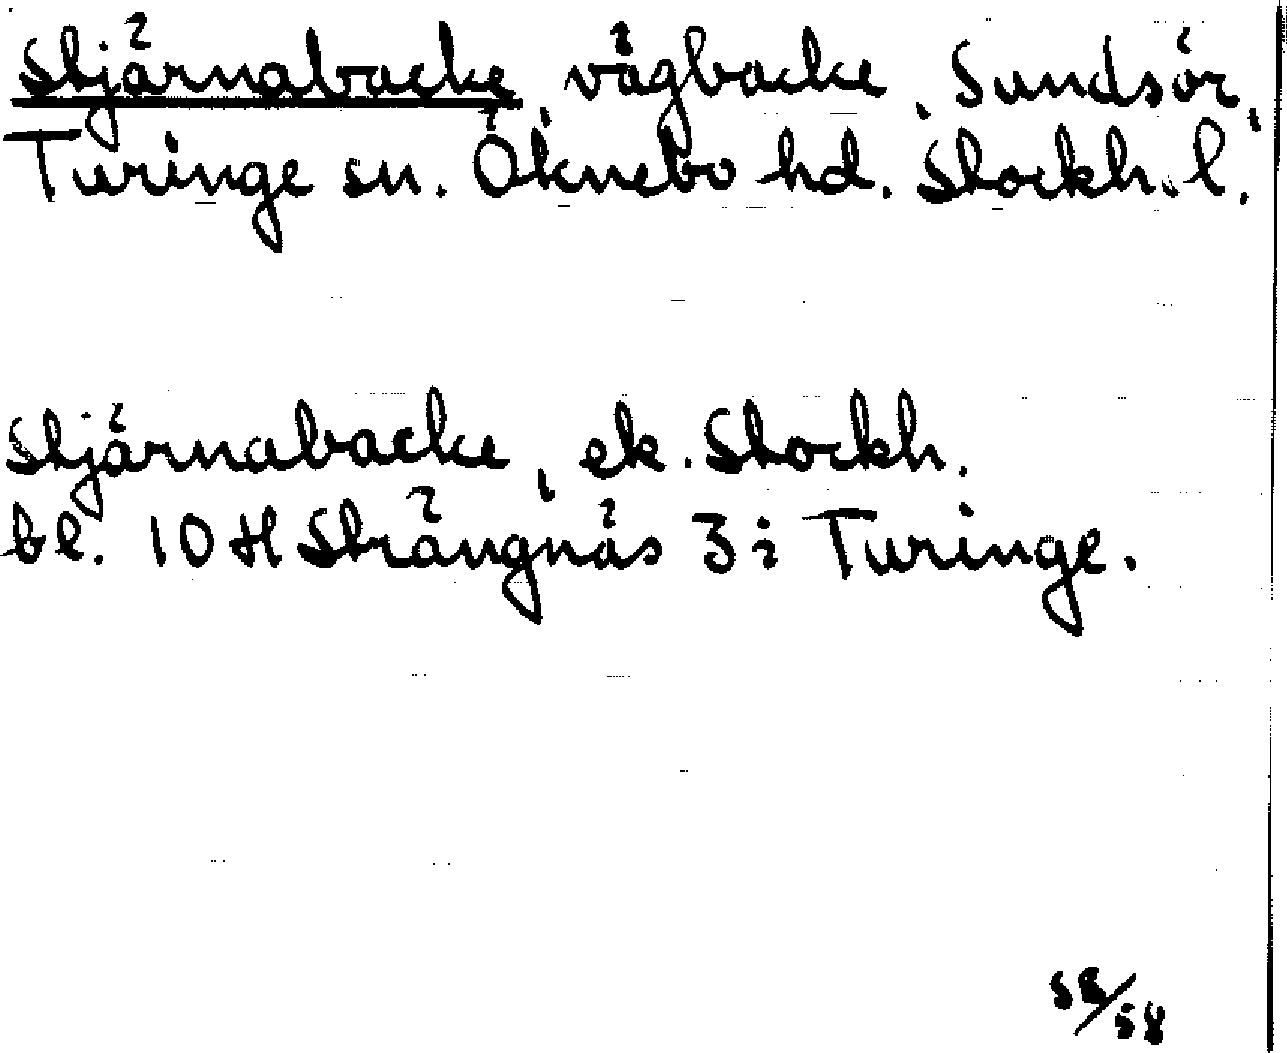 Stjärnabacke, vägbacke, Sundsör,
Turinge sn. Öknebo hd. Stockh. l.
Stjärnabacke, ek. Stockh.
bl. 10 H Strängnäs 3 i Turinge.